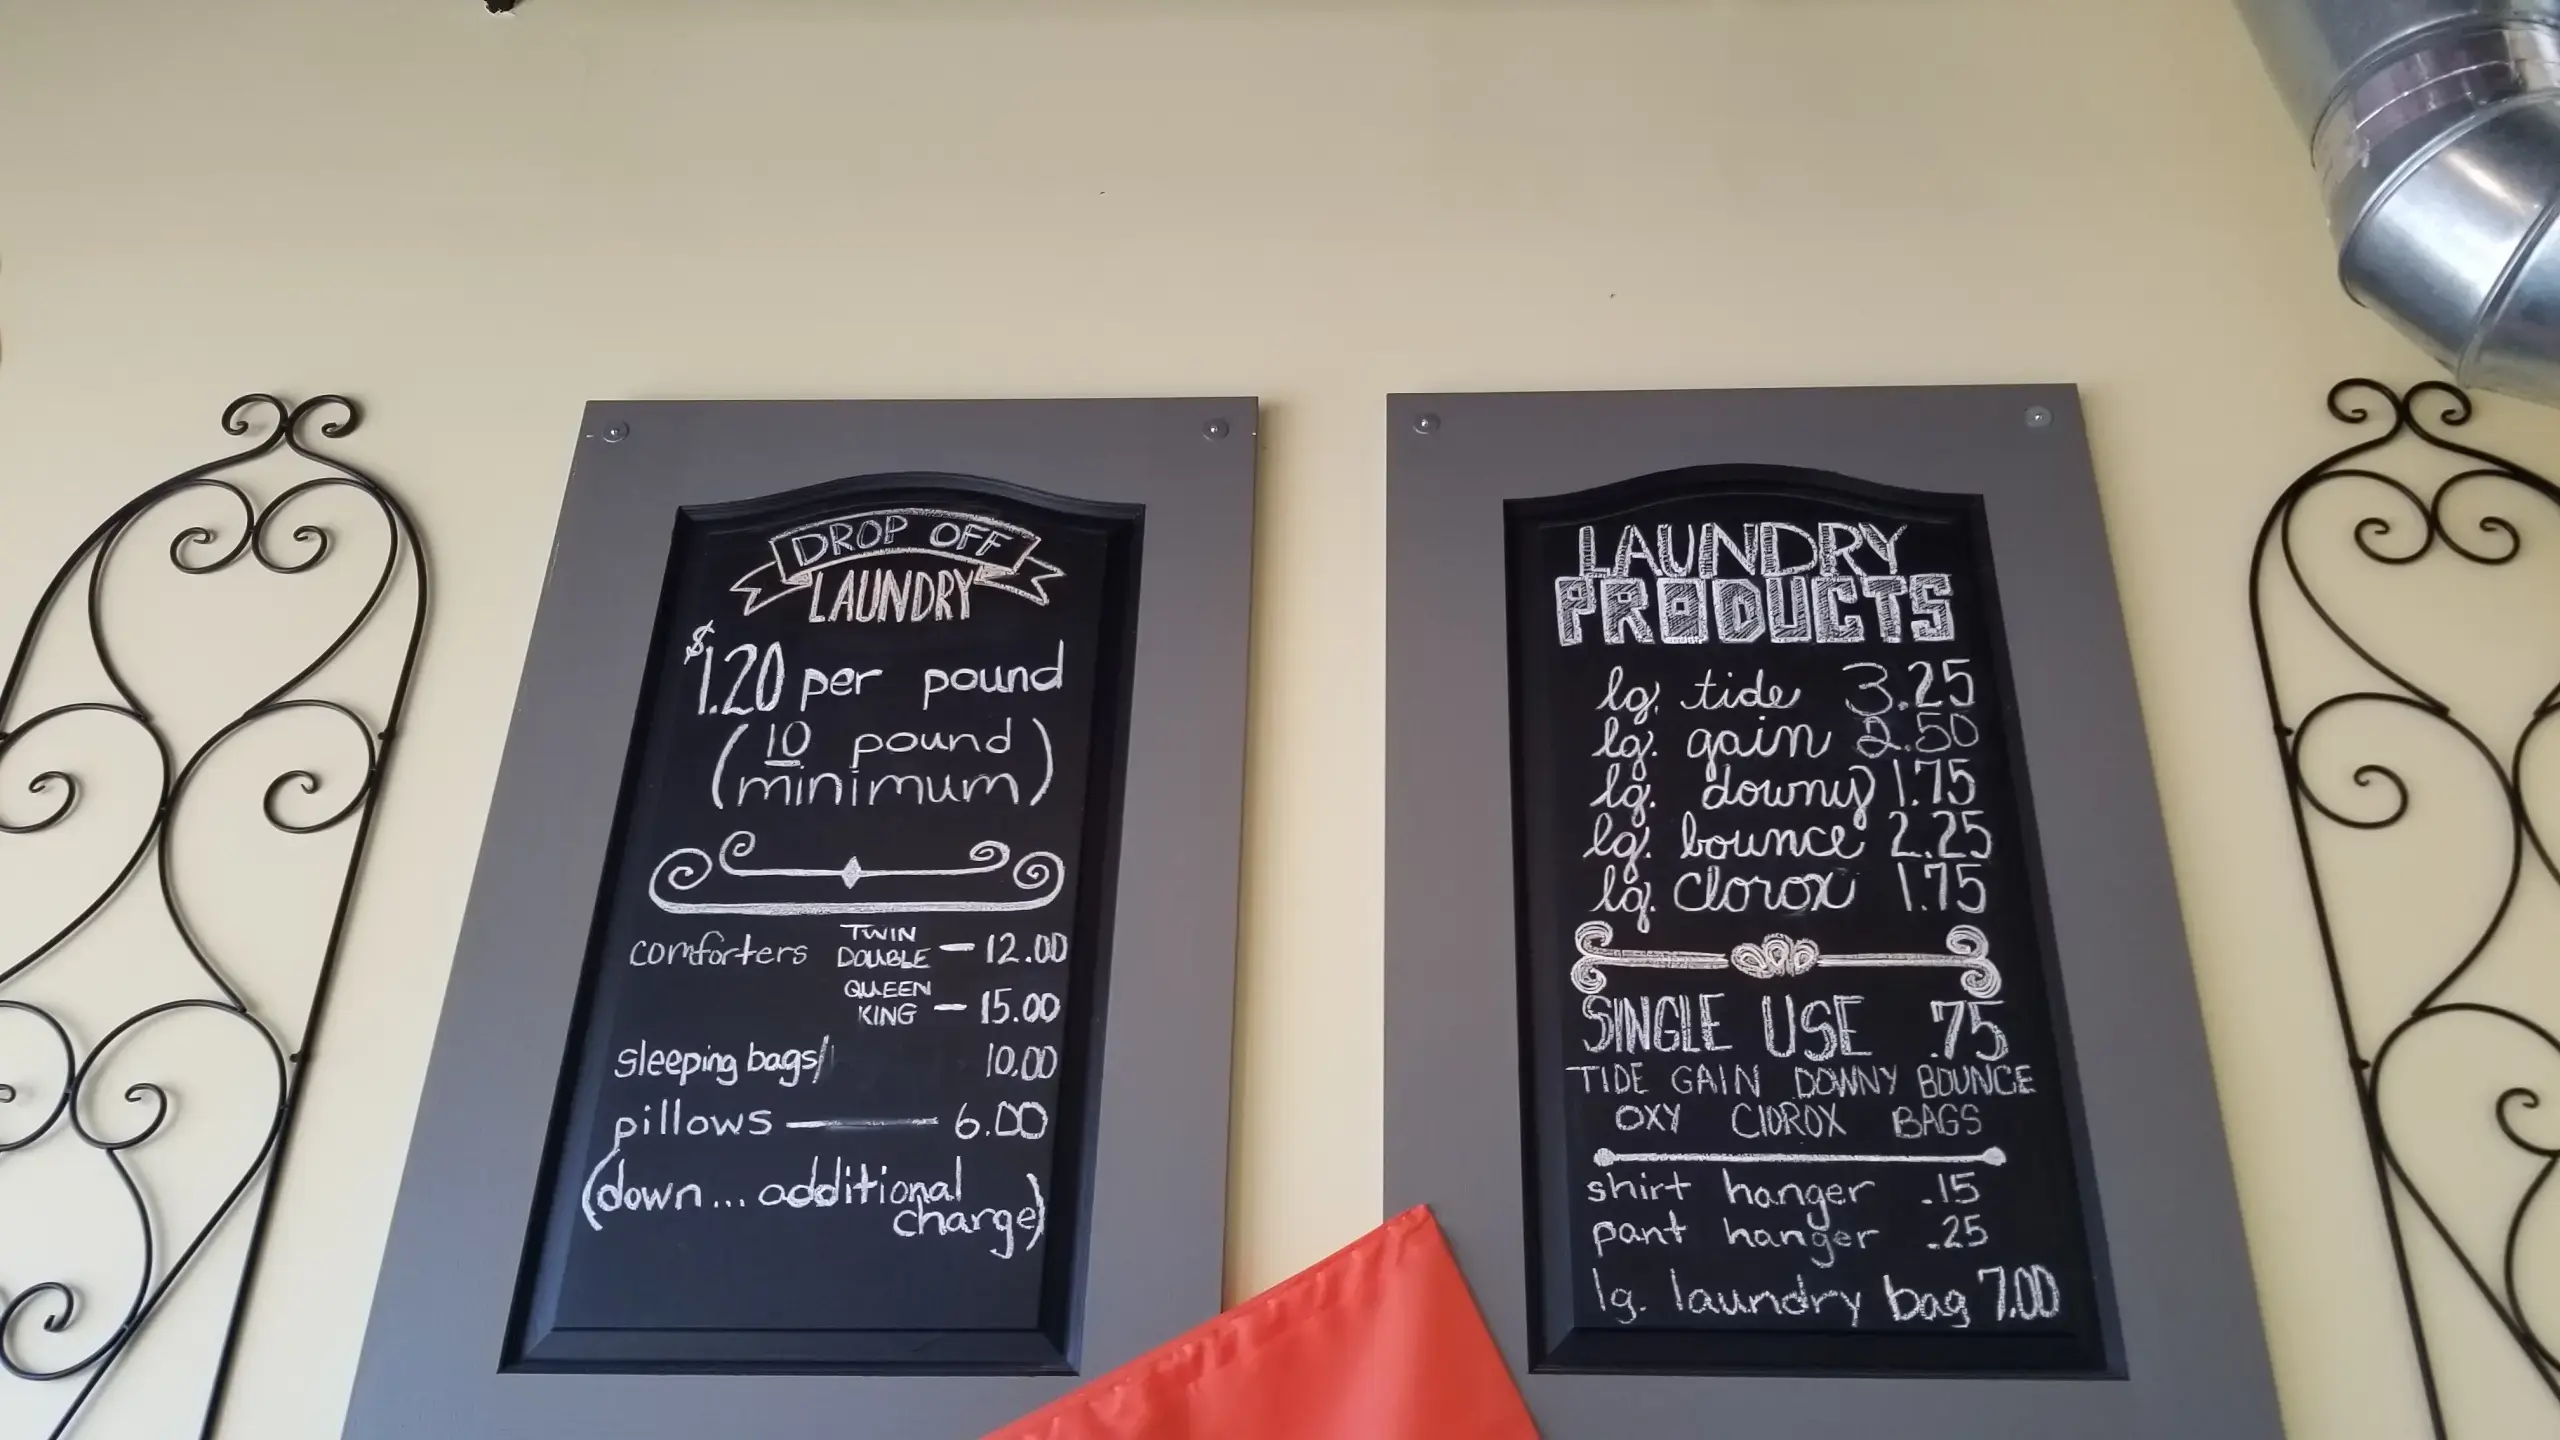 DROP OFF
LAUNDRY
$1.20 per pound
(10 pound
minimum)
comforters TWIN DOUBLE — 12.00
QUEEN KING — 15.00
sleeping bags/ 10.00
pillows — 6.00
(down... additional
charge)
LAUNDRY
PRODUCTS
lg. tide 3.25
lg. gain 2.50
lg. downy 1.75
lg. bounce 2.25
lg. Clorox 1.75
SINGLE USE .75
TIDE GAIN DOWNY BOUNCE
OXY ClOROX BAGS
shirt hanger .15
pant hanger .25
lg. laundry bag 7.00